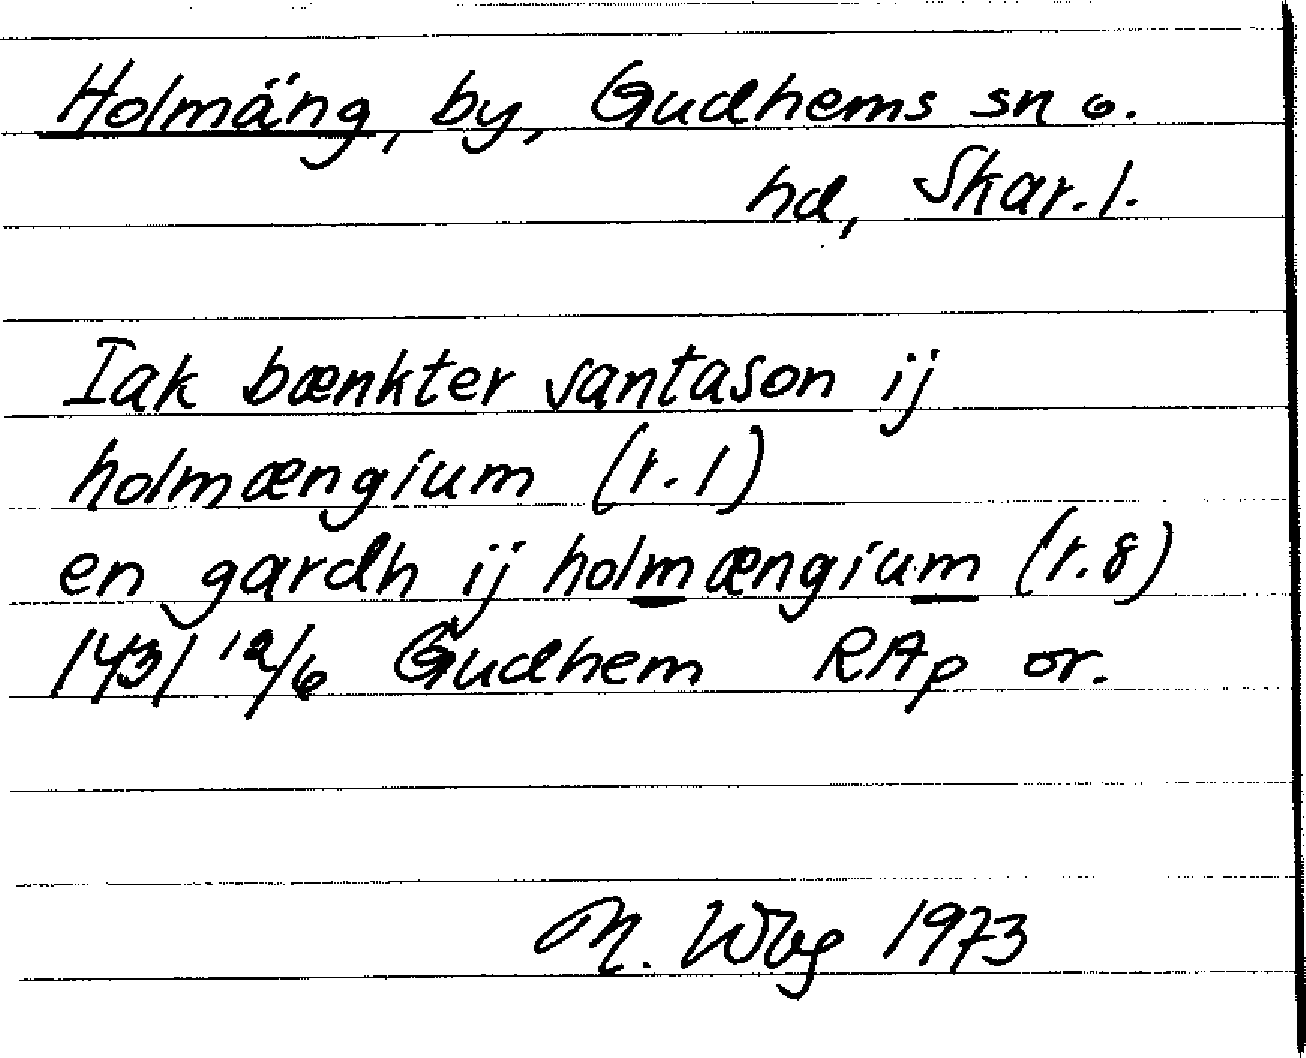 Holmäng, by, Gudhems sn o.
hd, Skar. l.
Iak bænkter santason ij
holmængium (r. 1)
en gardh ij holmængium (r. 8)
1431 12/6 Gudhem RAp or.
M. Wbg 1973